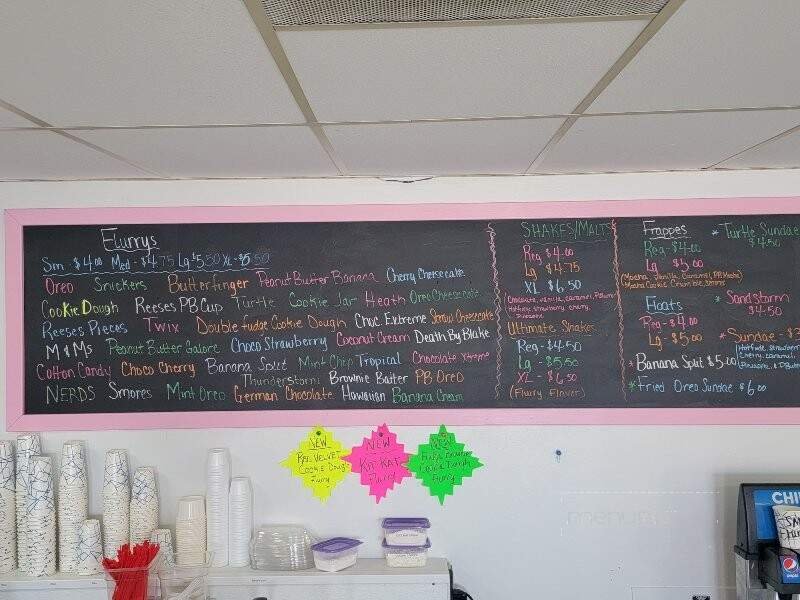 Flurrys
Sm $4.00 Med - $4.75 Lg $5.50 XL - $5.50
Oreo Snickers Butterfinger Peanut Butter Banana Cherry Cheesecake
Cookie Dough Reeses PB Cup Turtle Cookie Jar Heath Oreo Cheesecake
Reeses Pieces Twix Double fudge Cookie Dough Choc Extreme Straw Cheesecake
M&Ms Peanut Butter Galore Choco Strawberry Coconut Cream Death By Blake
Cotton Candy Choco Cherry Banana Split Mint Chip Tropical Chocolate Xtreme
Thunderstorm Brownie Batter PB Oreo
NERDS Smores Mint Oreo German Chocolate Hawaiian Banana Cream
SHAKES/MALTS
Reg $4.00
Lg $4.75
XL $6.50
Chocolate, vanilla, caramel,
Hotfudge, strawberry, cherry,
Pineapple
Ultimate Shakes
Reg - $4.50
Lg - $5.50
XL - $6.50
(Flurry Flavor)
Frappes
Reg - $4.00
Lg $5.00
(Mocha, Vanilla, Caramel, PB Mocha)
Mocha Cookie Crumble, Smores
Floats
Reg - $4.00
Lg - $5.00
*Banana Split $5.00
*Fried Oreo Sundae $6.00
*Turtle Sundae
$4.50
*Sandstorm
$4.50
*Sundae - $3
Hotfudge, strawberry
Cherry, caramel,
NEW
Red Velvet
Cookie Dough
Flurry
NEW
Kit Kat
Flurry
NEW
Cookie Dough
Flurry
pepsi